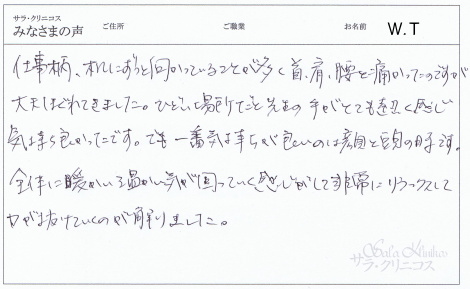 サラ・クリニコス
みなさまの声 ご住所 ご職業 お名前 W.T
仕事柄、机にずっと向かっていることが多く首、肩、腰と痛かったのですが
大夫ほぐれてきました。ひどい場所だと先生の手がとても熱く感じ
気持ち良かったです。でも一番気持ちが良いのは顔と頭の時です。
全体に暖かいる温かい気が回っていく感じがして非常にリラックスして
力が抜けていくのが解りました。
Sala Klinikos
サラ・クリニコス